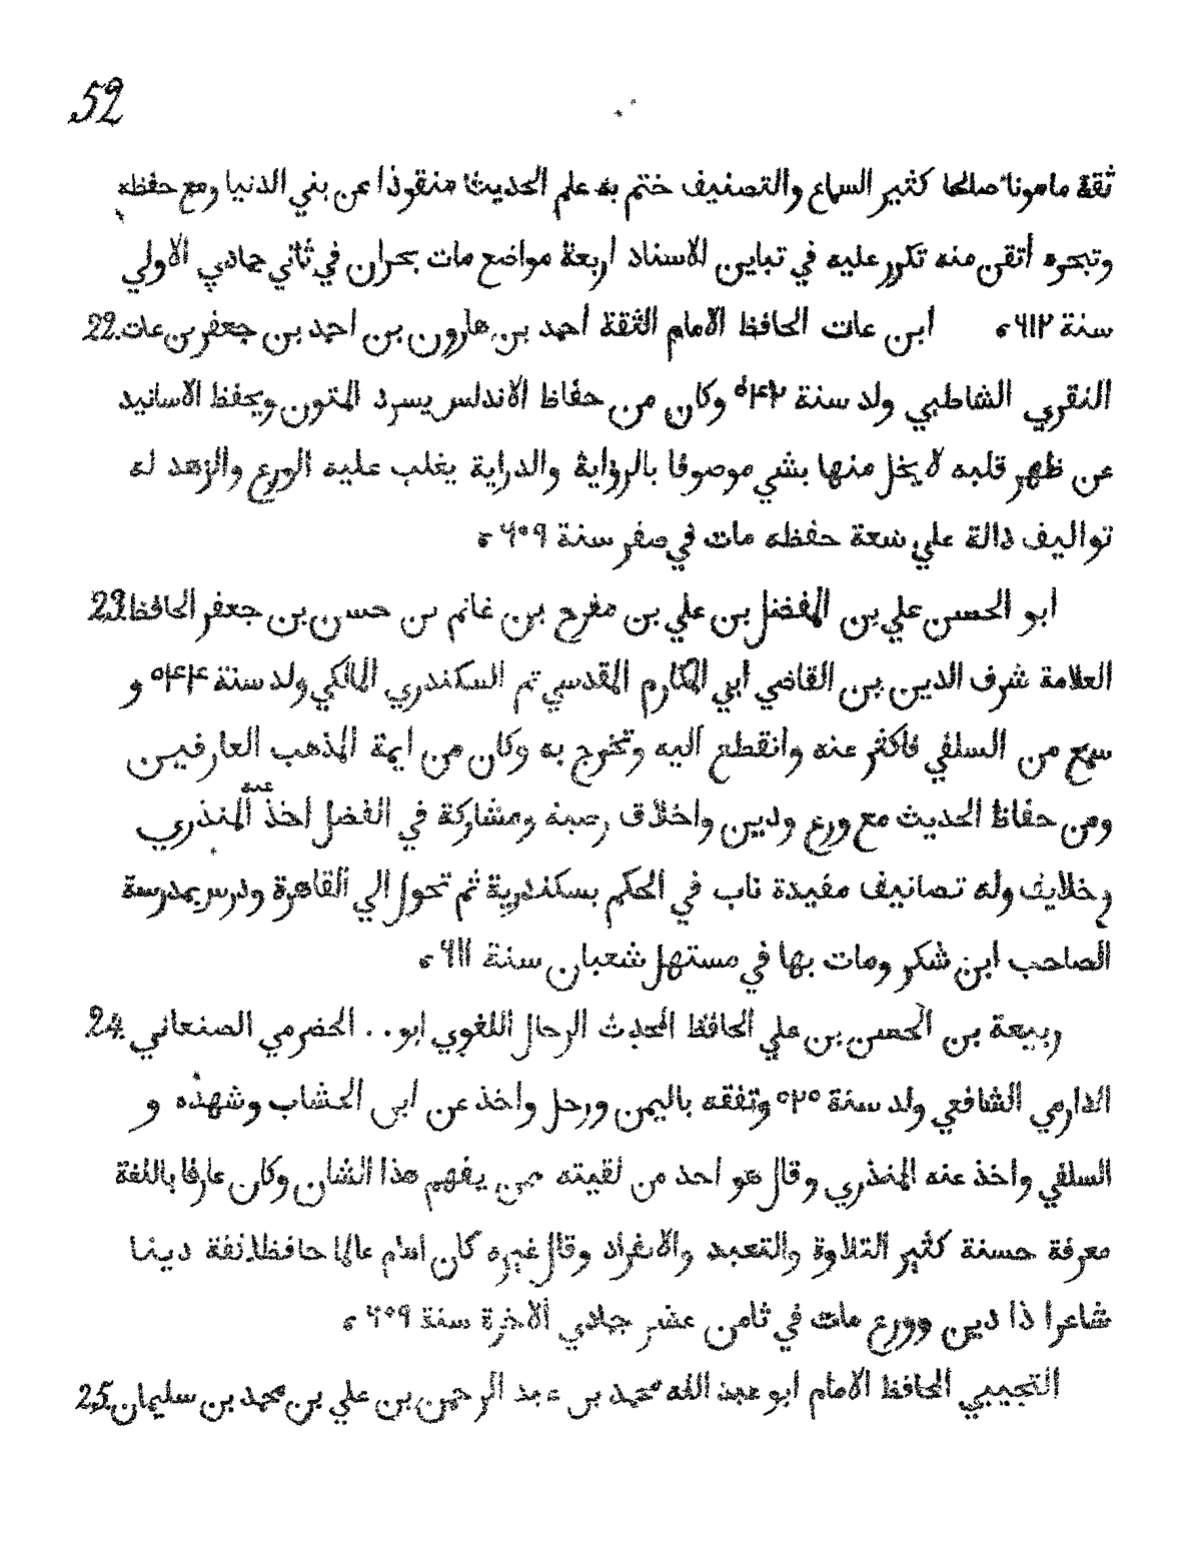 52
ثقة مامونا صالحا كثير السماع والتصنيف ختم به علم الحديث منقوذا عن بني الدنيا ومع حفظه
وتبحره أتقن منه تكرر عليه في تباين الاسناد اربعة مواضع مات بحران في ثاني جمادي الاولي
سنة ٦١٢ ه أبن عات الحافظ الامام الثقة أحمد بن هارون بن احمد بن جعفر بن عات .22
النقري الشاطبي ولد سنة ٥٤٢ وكان من حفاظ الاندلس يسرد المتون ويحفظ الاسانيد
عن ظهر قلبه لا يخل منها بشي موصوفا بالرواية والدراية يغلب عليه الورع والزهد له
تواليف دالة علي سعة حفظه مات في صفر سنة ٦٠٩ ه
ابو الحسن علي بن المفضل بن علي بن مفرح بن غانم بن حسن بن جعفر الحافظ .23
العلامة شرف الدين بن القاضي ابي المكارم المقدسي ثم السكندري المالكي ولد سنة ٥٤٤ و
سمع من السلفي فاكثر عنه وانقطع اليه وتخرج به وكان من ايمة المذهب العارفين
ومن حفاظ الحديث مع ورع ودين واخلاق رصينة ومشاركة في الفضل اخذ عنه المنذري
وخلايف وله تصانيف مفيدة ناب في الحكم بسكندرية ثم تحول الي القاهرة ودرس بمدرسة
الصاحب ابن شكر ومات بها في مستهل شعبان سنة ٦١١ ه
ربيعة بن الحسن بن علي الحافظ المحدث الرحال اللغوي ابو . . الحضرمي الصنعاني .24
الذارمي الشافعي ولد سنة ٥٢٥ وتفقه باليمن ورحل واخذ عن ابي الحشاب وشهذه و
السلفي واخذ عنه المنذري وقال هو احد من لقيته ممن يفهم هذا الشان وكان عارفا باللغة
معرفة حسنة كثير التلاوة والتعبد والانفراد وقال غيره كان امام عالما حافظا ثقة دينا
شاعرا ذا دين وورع مات في ثامن عشر جمادي الاخرة سنة ٦٠٩ ه
التجيبي الحافظ الامام ابو عبد الله محمد بن عبد الرحمن بن علي بن محمد بن سليمان .25